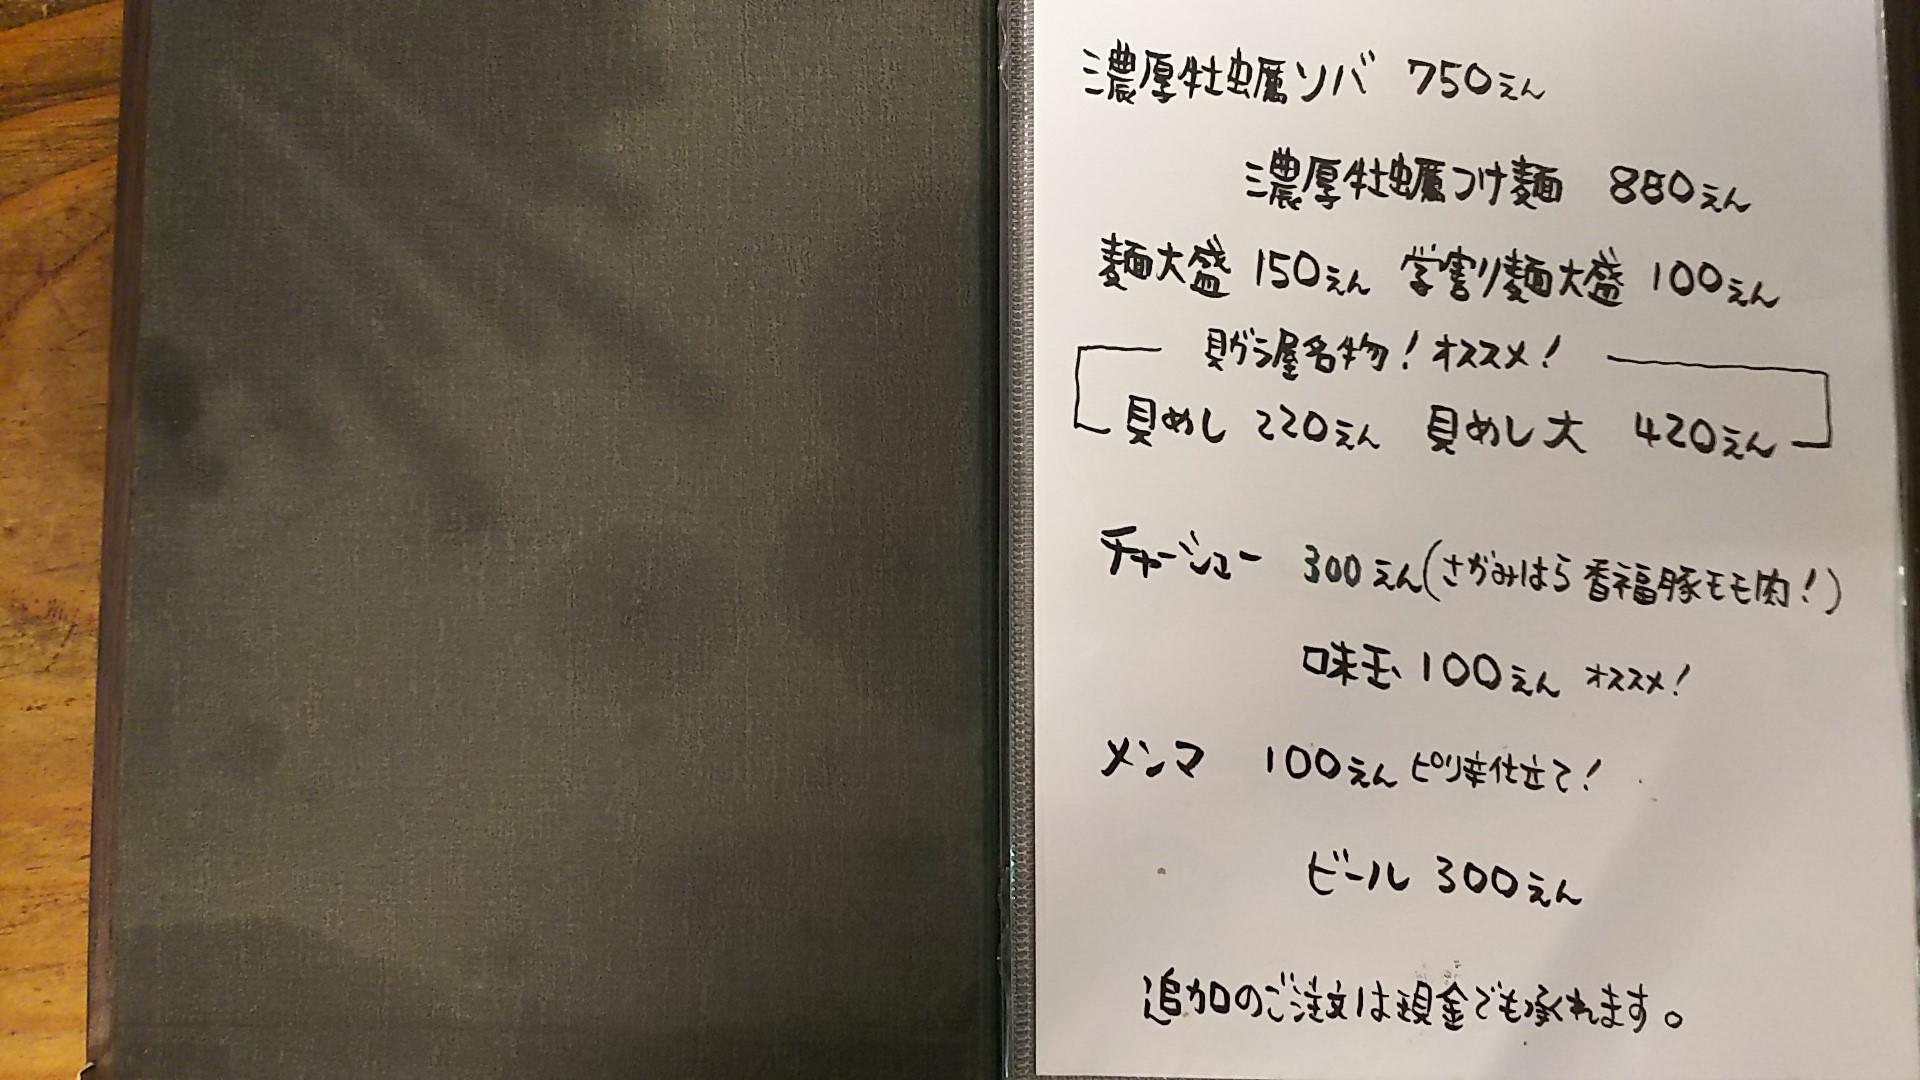 濃厚牡蠣ソバ 750えん
濃厚牡蠣つけ麺 880えん
麺大盛 150えん 学割り麺大盛 100えん
貝ガラ屋名物！オススメ！
貝めし 220えん 貝めし大 420えん
チャーシュー 300えん(さがみはら香福豚モモ肉！)
味玉 100えん オススメ！
メンマ 100えん ピリ辛仕立て！
ビール 300えん
追加のご注文は現金でも承れます。